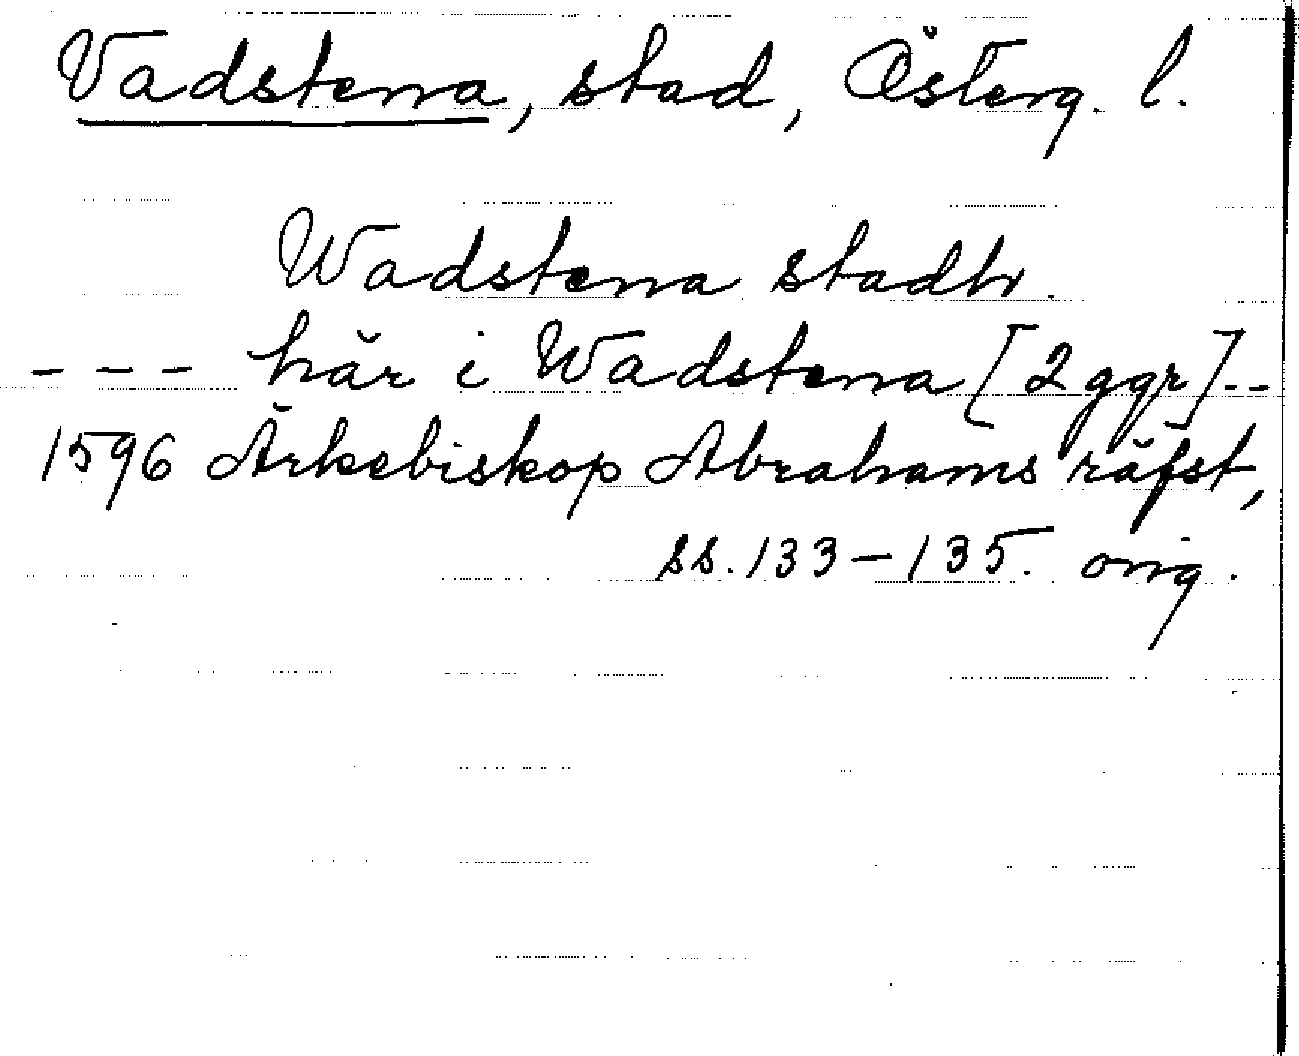 Vadstena, stad, Österg. l.
Wadstena stadh.
--- här i Wadstena [2 ggr] --
1596 Ärkebiskop Abrahams räfst,
ss. 133-135. orig.